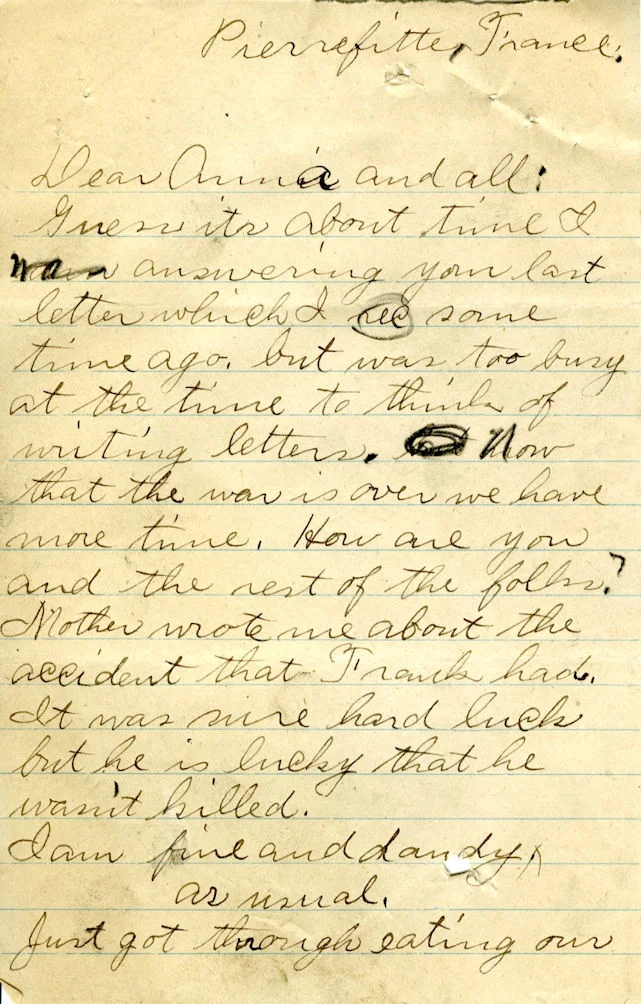 Pierrefitte, France.
Dear Anna and all:
Guess its about time I
was answering your last
letter which I rec some
time ago. but was too busy
at the time to think of
writing letters. Now
that the war is over we have
more time. How are you
and the rest of the folks?
Mother wrote me about the
accident that Frank had.
It was sure hard luck
but he is lucky that he
wasn't killed.
I am fine and dandy,
as usual.
Just got through eating our